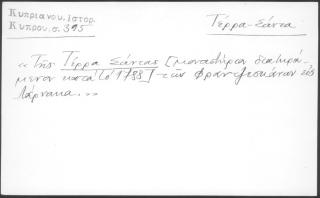 Κυπριανου. Ιστορ.
Κυπρου. σ. 395
Τέρρα-Σάντα
« Τῆς Τέρρα Σάντας [μοναστήριον διατηρά-
μενον κατὰ τὸ 1788] τῶν Φραντζεσκάνων εἰς
Λάρνακα. »